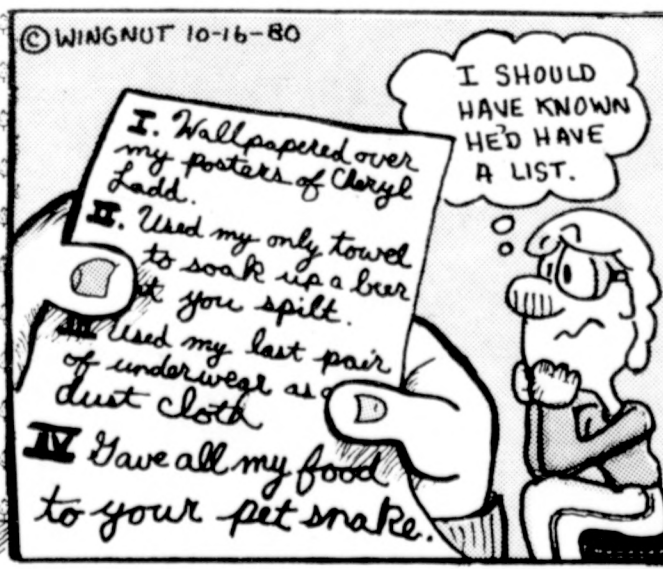 © WINGNUT 10-16-80
I SHOULD
HAVE KNOWN
HE'D HAVE
A LIST.
I. Wallpapered over
my posters of Cheryl
Ladd.
II. Used my only towel
to soak up a beer
you spilt.
III Used my last pair
of underwear as a
dust cloth
IV Gave all my food
to your pet snake.